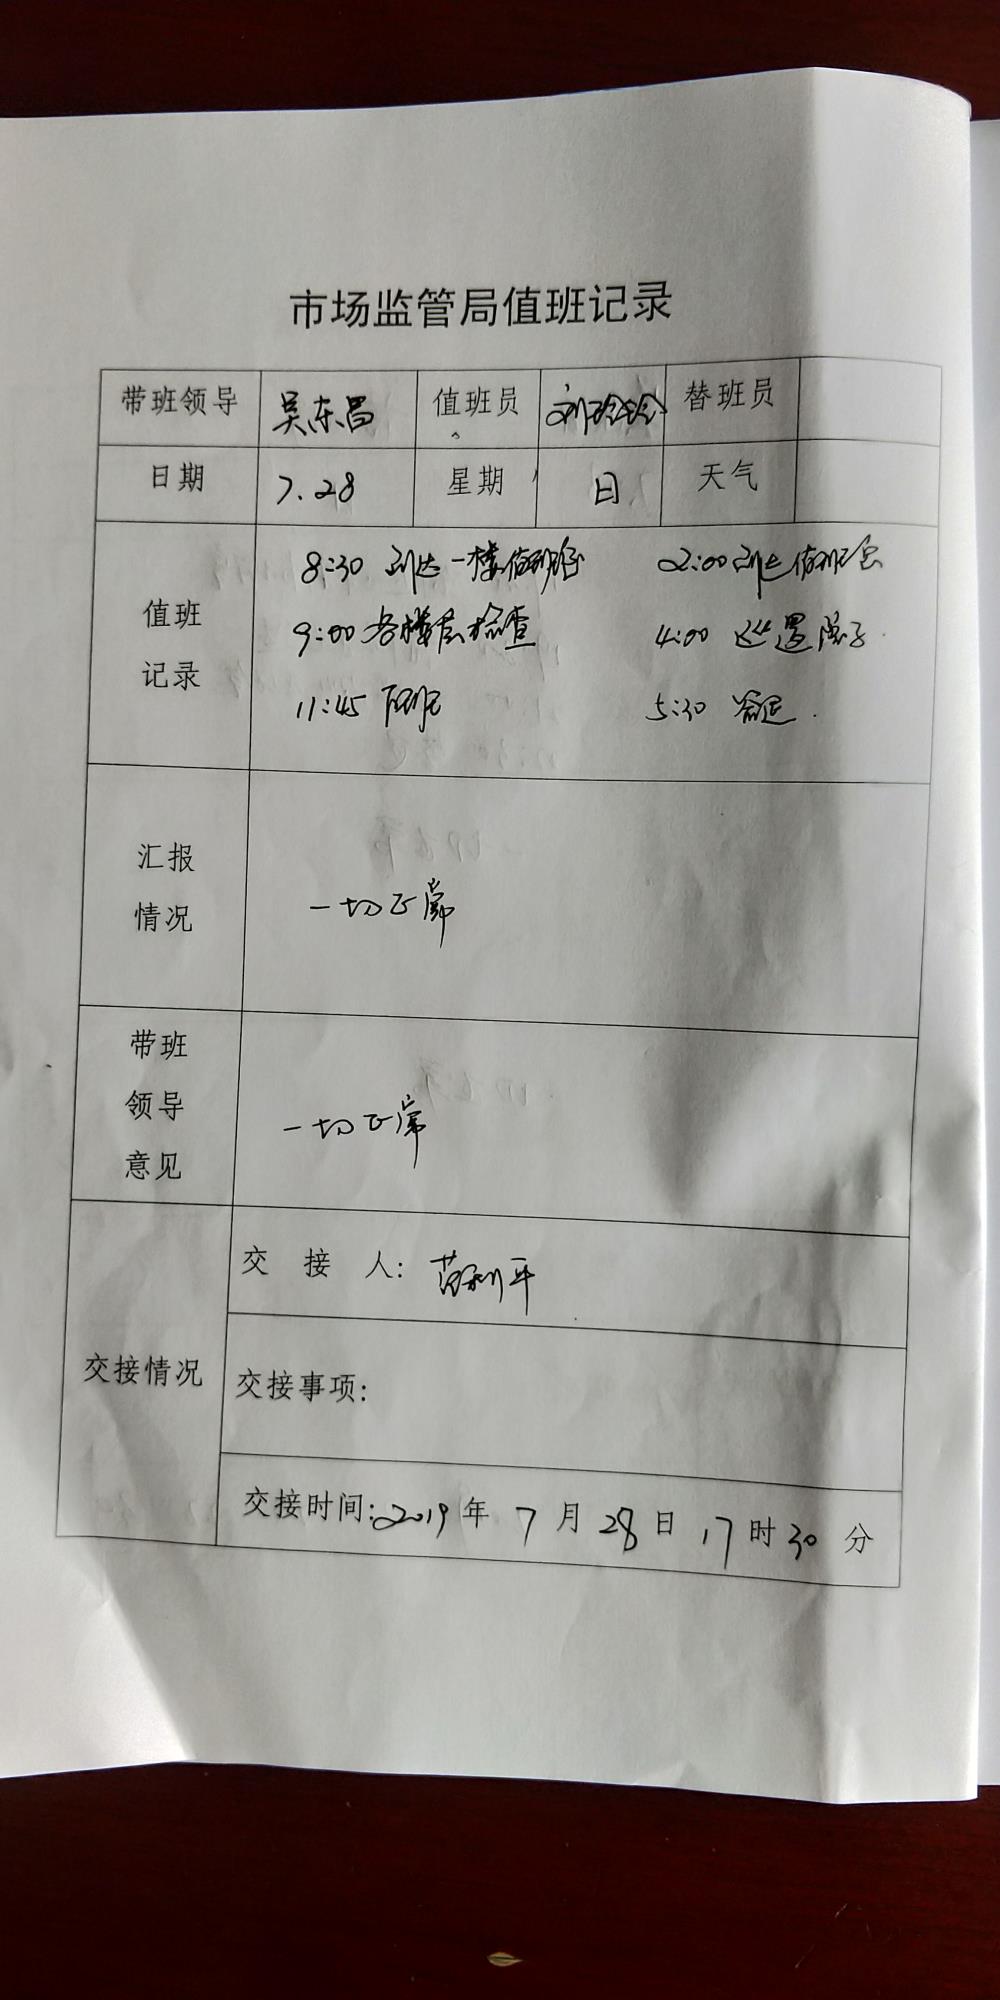 市场监管局值班记录
带班领导 吴东昌 值班员 刘玲玲 替班员
日期 7.28 星期 日 天气
值班记录
8:30 到达一楼值班室 2:00 到达值班室
9:00 各楼层检查 4:00 巡逻院子.
11:45 下班 5:30 签退.
汇报情况
一切正常
带班领导意见
一切正常
交接人: 苗利平
交接情况
交接事项:
交接时间: 2019年7月28日17时30分